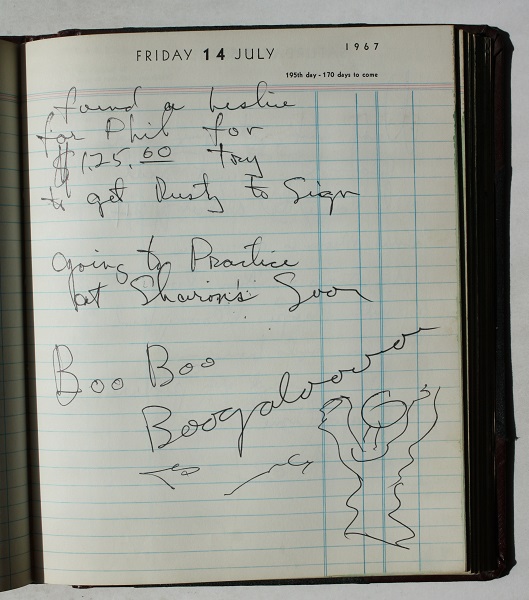 FRIDAY 14 JULY 1967
195th day - 170 days to come
found a Leslie
for Phil for
$125.00 try
to get Rusty to Sign
going to Practice
at Sharon's Soon
Boo Boo
Boogaloowoo